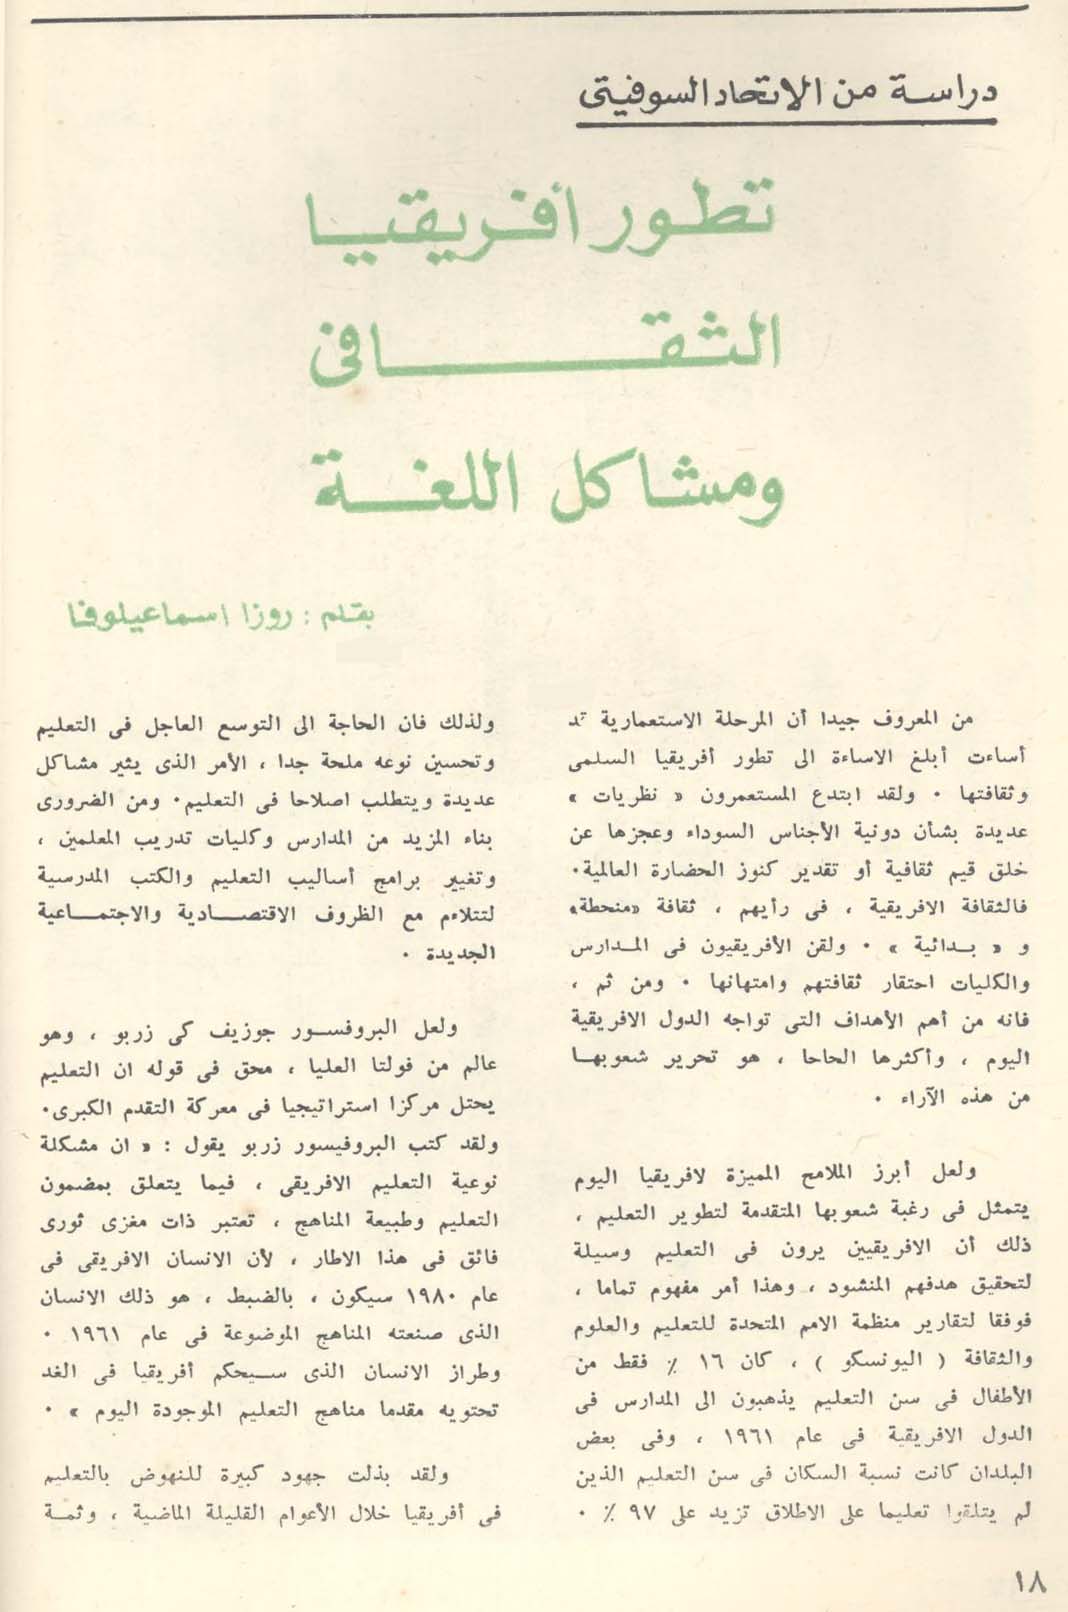 دراسة من الاتحاد السوفيتى
تطور أفريقيا
الثقافى
ومشاكل اللغة
بقلم : روزا اسماعيلوفا
من المعروف جيدا أن المرحلة الاستعمارية قد
أساءت أبلغ الاساءة الى تطور أفريقيا السلمى
وثقافتها ٠ ولقد ابتدع المستعمرون « نظريات »
عديدة بشأن دونية الأجناس السوداء وعجزها عن
خلق قيم ثقافية أو تقدير كنوز الحضارة العالمية٠
فالثقافة الافريقية ، فى رأيهم ، ثقافة «منحطة»
و « بدائية » ٠ ولقن الأفريقيون فى المدارس
والكليات احتقار ثقافتهم وامتهانها ٠ ومن ثم ،
فانه من أهم الأهداف التى تواجه الدول الافريقية
اليوم ، وأكثرها الحاحا ، هو تحرير شعوبها
من هذه الآراء ٠
ولعل أبرز الملامح المميزة لافريقيا اليوم
يتمثل فى رغبة شعوبها المتقدمة لتطوير التعليم ،
ذلك أن الافريقيين يرون فى التعليم وسيلة
لتحقيق هدفهم المنشود ، وهذا أمر مفهوم تماما ،
فوفقا لتقارير منظمة الامم المتحدة للتعليم والعلوم
والثقافة ( اليونسكو ) ، كان ١٦ ٪ فقط من
الأطفال فى سن التعليم يذهبون الى المدارس فى
الدول الافريقية فى عام ١٩٦١ ، وفى بعض
البلدان كانت نسبة السكان فى سن التعليم الذين
لم يتلقوا تعليما على الاطلاق تزيد على ٩٧ ٪ ٠
ولذلك فان الحاجة الى التوسع العاجل فى التعليم
وتحسين نوعه ملحة جدا ، الأمر الذى يثير مشاكل
عديدة ويتطلب اصلاحا فى التعليم٠ ومن الضرورى
بناء المزيد من المدارس وكليات تدريب المعلمين ،
وتغيير برامج أساليب التعليم والكتب المدرسية
لتتلاءم مع الظروف الاقتصادية والاجتماعية
الجديدة ٠
ولعل البروفسور جوزيف كى زربو ، وهو
عالم من فولتا العليا ، محق فى قوله ان التعليم
يحتل مركزا استراتيجيا فى معركة التقدم الكبرى٠
ولقد كتب البروفيسور زربو يقول : « ان مشكلة
نوعية التعليم الافريقى ، فيما يتعلق بمضمون
التعليم وطبيعة المناهج ، تعتبر ذات مغزى ثورى
فائق فى هذا الاطار ، لأن الانسان الافريقى فى
عام ١٩٨٠ سيكون ، بالضبط ، هو ذلك الانسان
الذى صنعته المناهج الموضوعة فى عام ١٩٦١ ٠
وطراز الانسان الذى سيحكم أفريقيا فى الغد
تحتويه مقدما مناهج التعليم الموجودة اليوم » ٠
ولقد بذلت جهود كبيرة للنهوض بالتعليم
فى أفريقيا خلال الأعوام القليلة الماضية ، وثمة
١٨